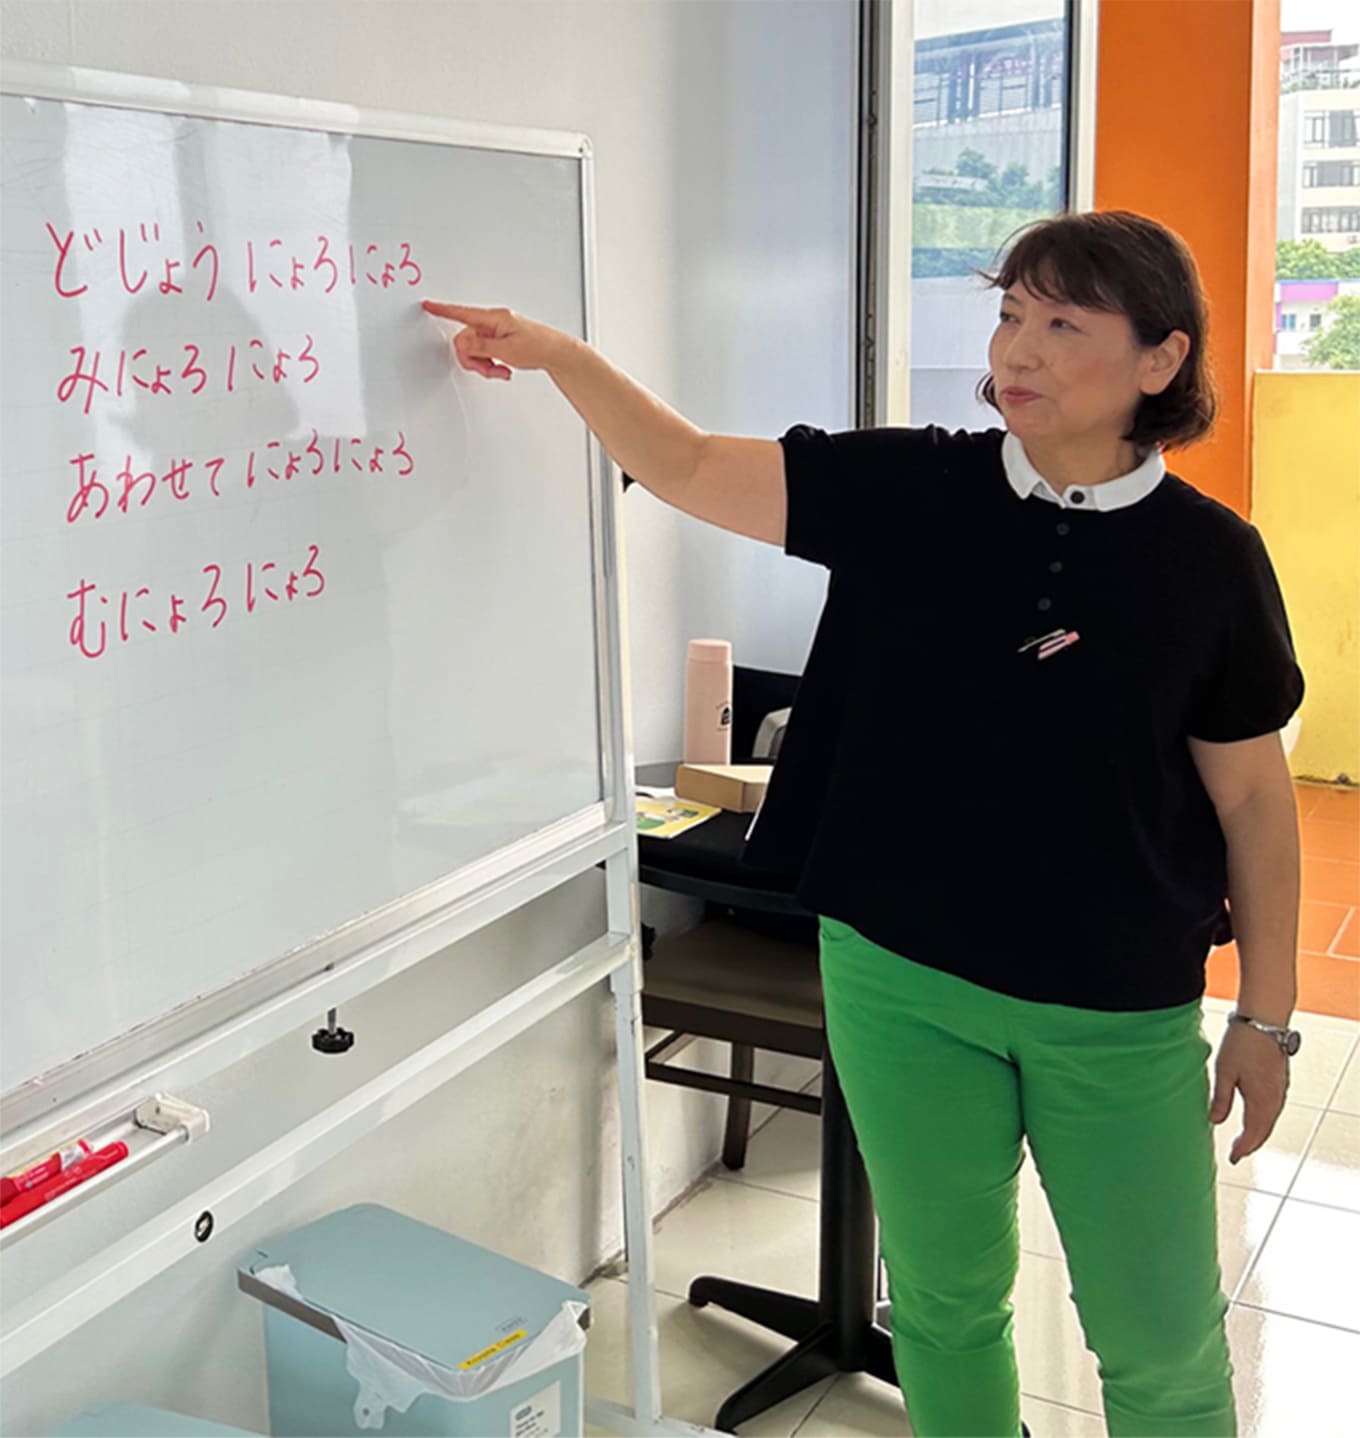 どじょうにょろにょろ
みにょろにょろ
あわせてにょろにょろ
むにょろにょろ